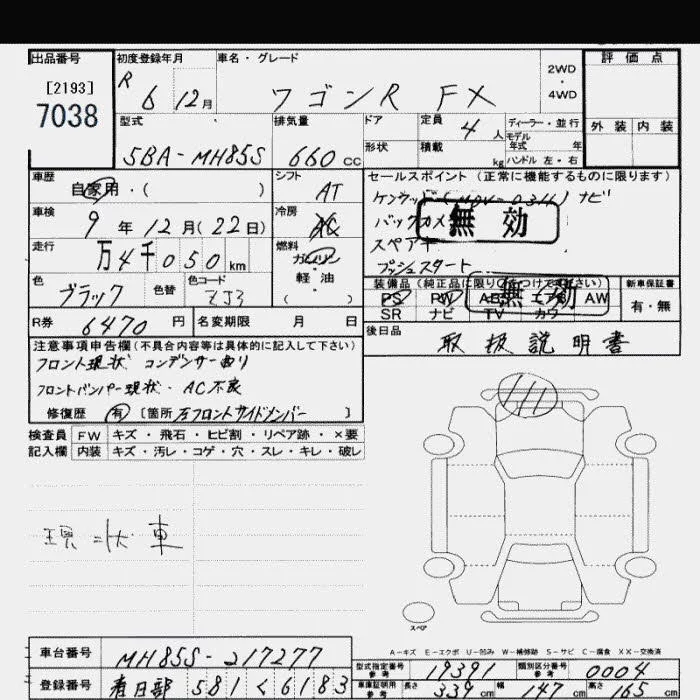 出品番号
[2193]
7038
初度登録年月
R 6 12月
車名・グレード
ワゴンR FX
2WD
・
4WD
評価点
外装 内装
型式
5BA-MH85S
排気量
660 cc
ドア
定員 4 人
形状
積載 kg
ディーラー・並行
モデル年式 年
ハンドル 左・右
車歴
自家用・( )
シフト
AT
車検
9年12月(22日)
冷房
AC
走行
万4千050km
燃料
ガソリン
軽・油
( )
色
ブラック
色替
色コード
ZJ3
R券 6470円
名変期限 月 日
セールスポイント (正常に機能するものに限ります)
ケンウッド ナビ
バックカメ
スペアキ
プッシュスタート
無効
装備品(純正品に限り○をつけて下さい)
PS PW AB エアB AW
SR ナビ TV カワ
無効
新車保証書
有・無
後日品
取扱説明書
注意事項申告欄(不具合内容等は具体的に記入して下さい)
フロント現状 コンデンサー曲り
フロントバンパー現状・AC不良
修復歴 有 [箇所 左フロントサイドメンバー ]
検査員記入欄
FW キズ・飛石・ヒビ割・リペア跡・×要
内装 キズ・汚レ・コゲ・穴・スレ・キレ・破レ
現状車
スペア
A-キズ E-エクボ U-凹み W-補修跡 S-サビ C-腐食 XX-交換済
車台番号 MH85S-217277
登録番号 春日部 581 く 6183
型式指定番号 参考 19391
類別区分番号 参考 0004
車庫証明用 参考 長さ 339cm 幅 147cm 高さ 165cm